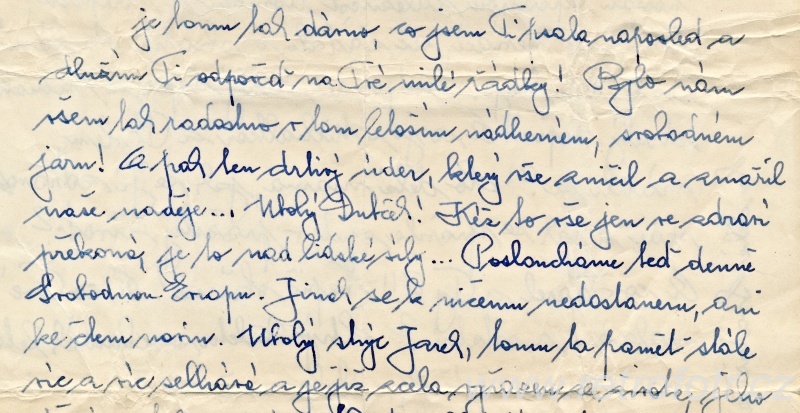 je tomu tak dávno, co jsem Ti psala naposled a
dlužím Ti odpověď na Tvé milé řádky! Bylo nám
všem tak radostno v tom letošním nádherném, svobodném
jaru! A pak ten drtivý úder, který vše zničil a zmařil
naše naděje... Ubohý Dubček! Kéž to vše jen ve zdraví
překoná, je to nad lidské síly... Posloucháme teď denně
Svobodnou Evropu. Jinak se k ničemu nedostanem, ani
ke čtení novin. Ubohý strýc Jarek, tomu ta paměť stále
víc a víc selhává a je již zcela vyřazen ze života, jeho